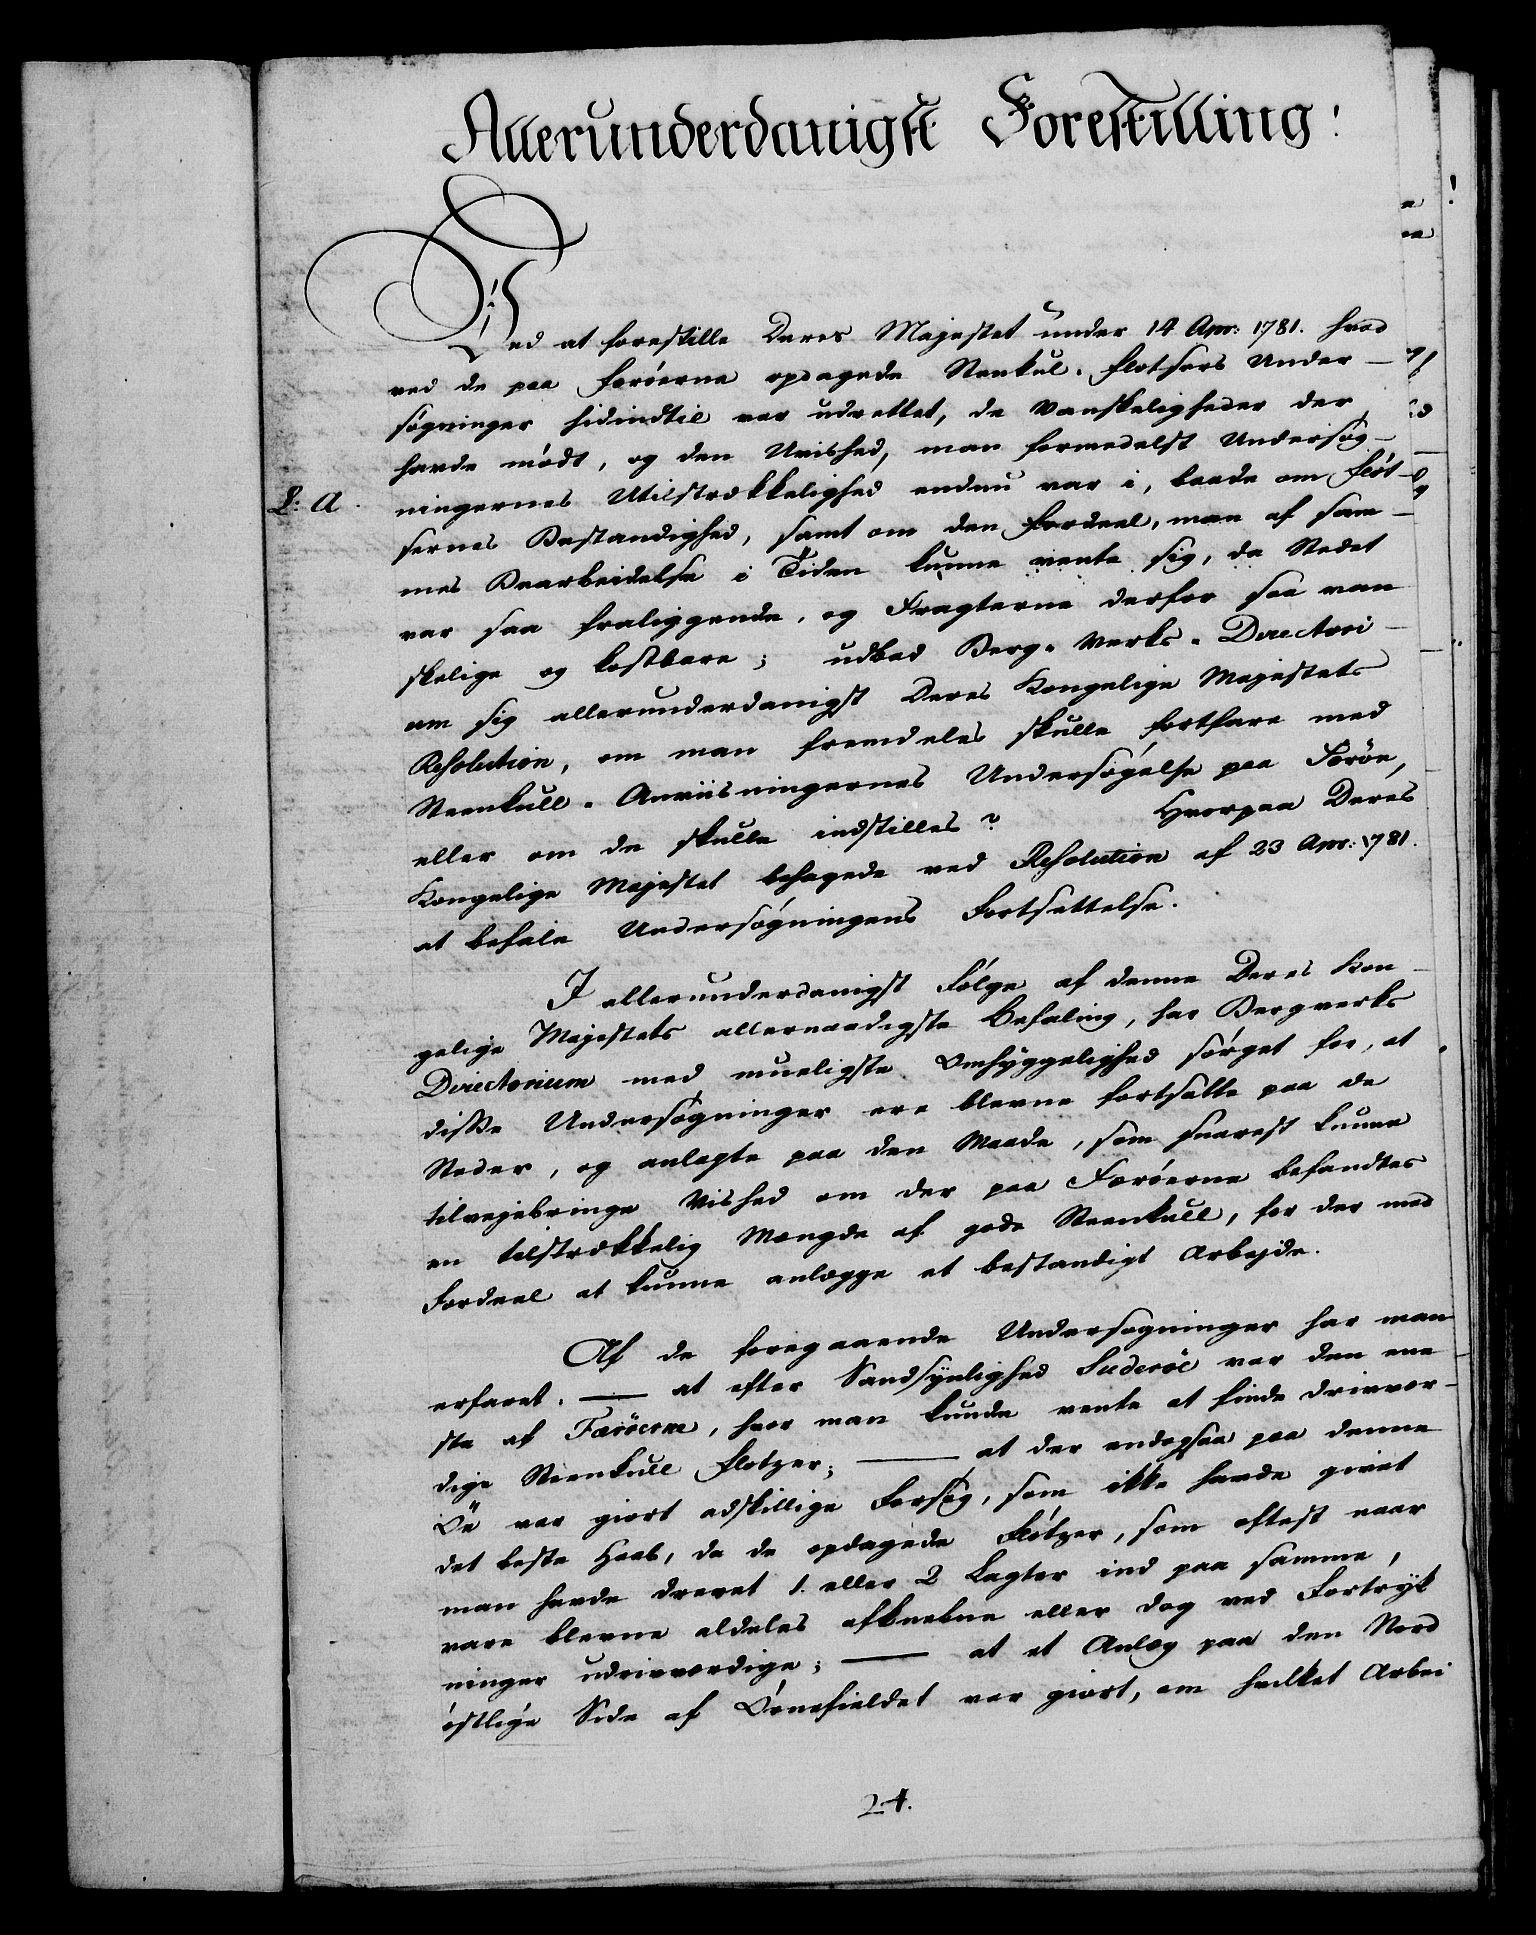 Allerunderdanigst Forestilling!
Ved at forestille Deres Majestet under 14 Apr: 1781. hvad
ved de paa Færøerne opdagede Steenkul-Flötsers Under-
søgninger hidindtil var udrettet, de Vanskeligheder der
havde mødt, og den Uvished, man formedelst Undersøg-
L: A.
ningernes Utilstrekkelighed endnu var i, baade om Fløt-
sernes Bestandighed, samt om den Fordeel, man af sam-
mes Bearbeidelse i Tiden kunne vente sig, da Stedet
var saa fraliggende, og Fragterne derfor saa van-
skelige og kostbare; udbad Berg-Verks-Directori-
um sig allerunderdanigst Deres Kongelige Majestets
Resolution, om man fremdeles skulle fortfare med
Steenkull-Anviisningernes Undersøgelse paa Færøe,
eller om de skulle indstilles? Hvorpaa Deres
Kongelige Majestet behagede ved Resolution af 23 Apr: 1781.
at befale Undersøgningens Fortsettelse.
I allerunderdanigst Følge af denne Deres Kon-
gelige Majestets allernaadigste Befaling, har Bergverks
Directorium med mueligste Omhyggelighed sørget for, at
disse Undersøgninger ere blevne fortsatte paa de
Steder, og anlagte paa den Maade, som snarest kunne
tilvejebringe Vished om der paa Færøerne befandtes
en tilstrekkelig Mængde af gode Steenkull, for der med
Fordeel at kunne anlægge et bestandigt Arbejde.
Af de foregaaende Undersøgninger har man
erfaret. — at efter Sandsynlighed Suderöe var den ene-
ste af Færöerne, hvor man kunde vente at finde drivvær-
dige Steenkull Flötzer; — at der endogsaa paa denne
Øe var giort adskillige Forsøg, som ikke havde givet
det beste Haab, da de opdagede Flötzer, som oftest naar
man havde drevet 1. eller 2 Lagter ind paa samme,
vare blevne aldeles afknebne eller dog ved Fortryk-
ninger udrivværdige; — at et Anlæg paa den Nord-
østlige Side af Ørnefieldet var giort, om hvilket Arbei-
24.